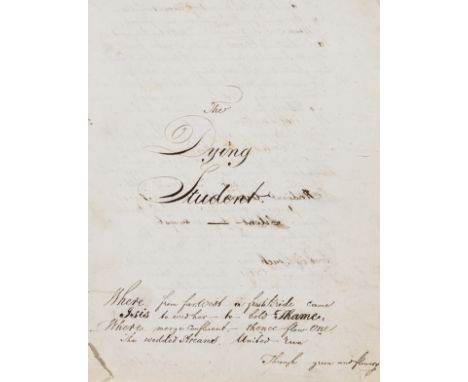 The
Dying
Student.
Where from far West a fresh bride came
Isis to wed her to bold Thame,
Where merge confluent thence flow One
The wedded Streams United run
Through green and flowery